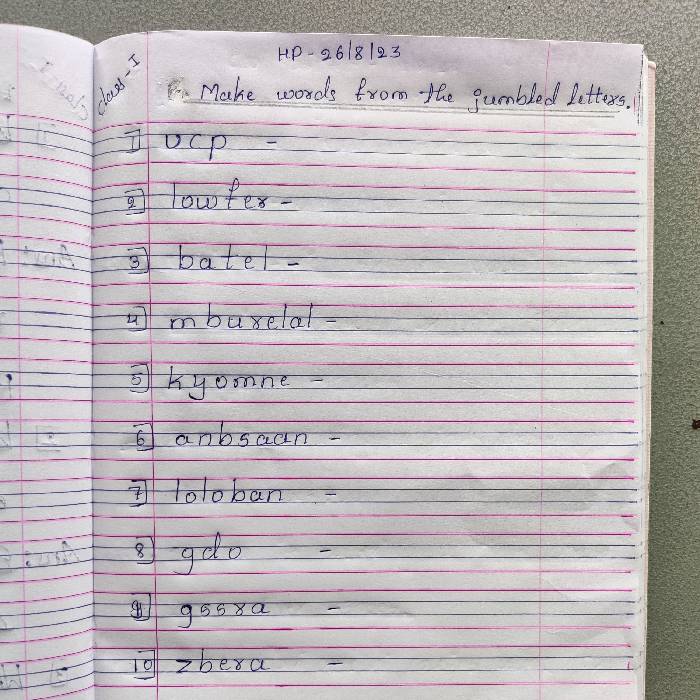 HP - 26/8/23
Class - I
Make words from the jumbled letters.
1) ucp -
2) lowfer -
3) batel -
4) mburelal -
5) kyomne -
6) anbsaan -
7) loloban -
8) gdo -
9) gssra -
10) zbera -